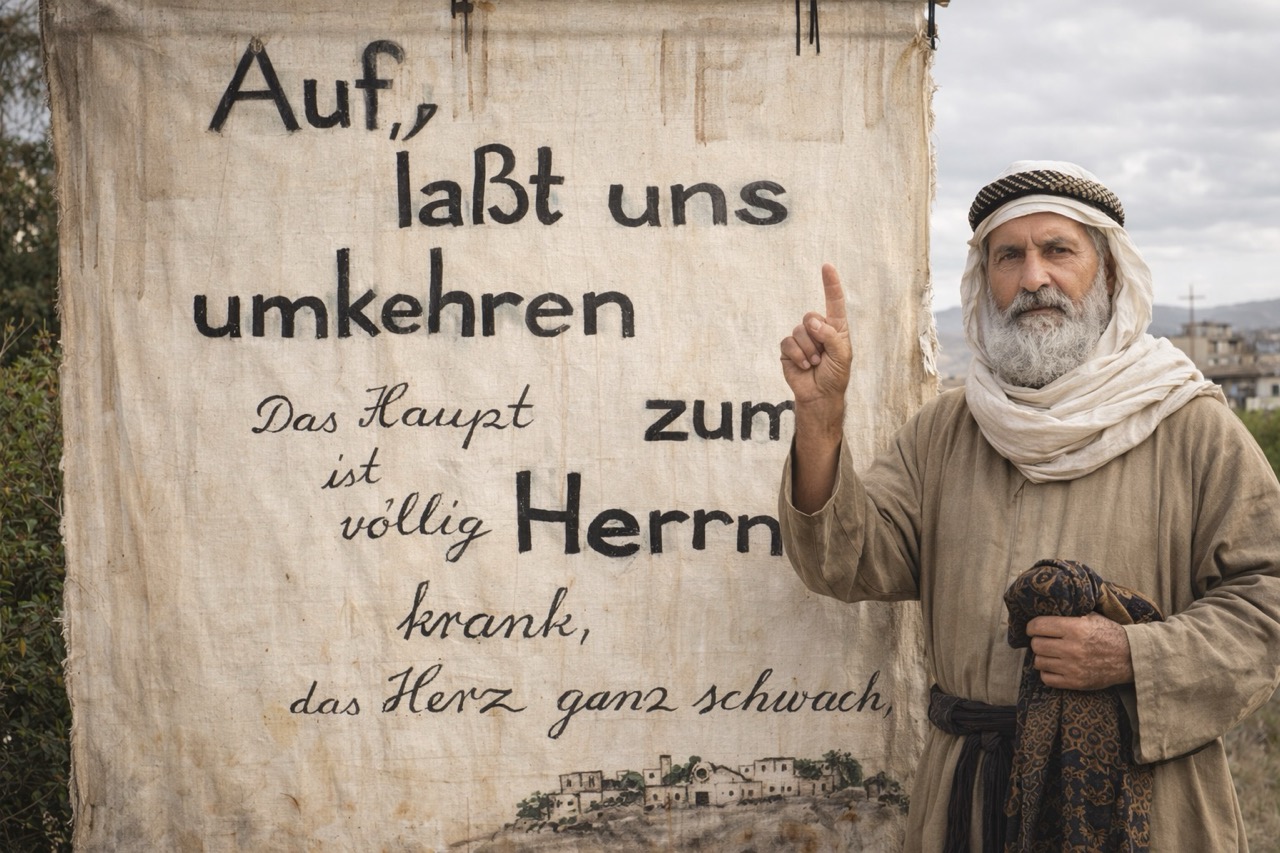 Auf,,
laßt uns
umkehren
zum
Herrn
Das Haupt
ist
völlig
krank,
das Herz ganz schwach,